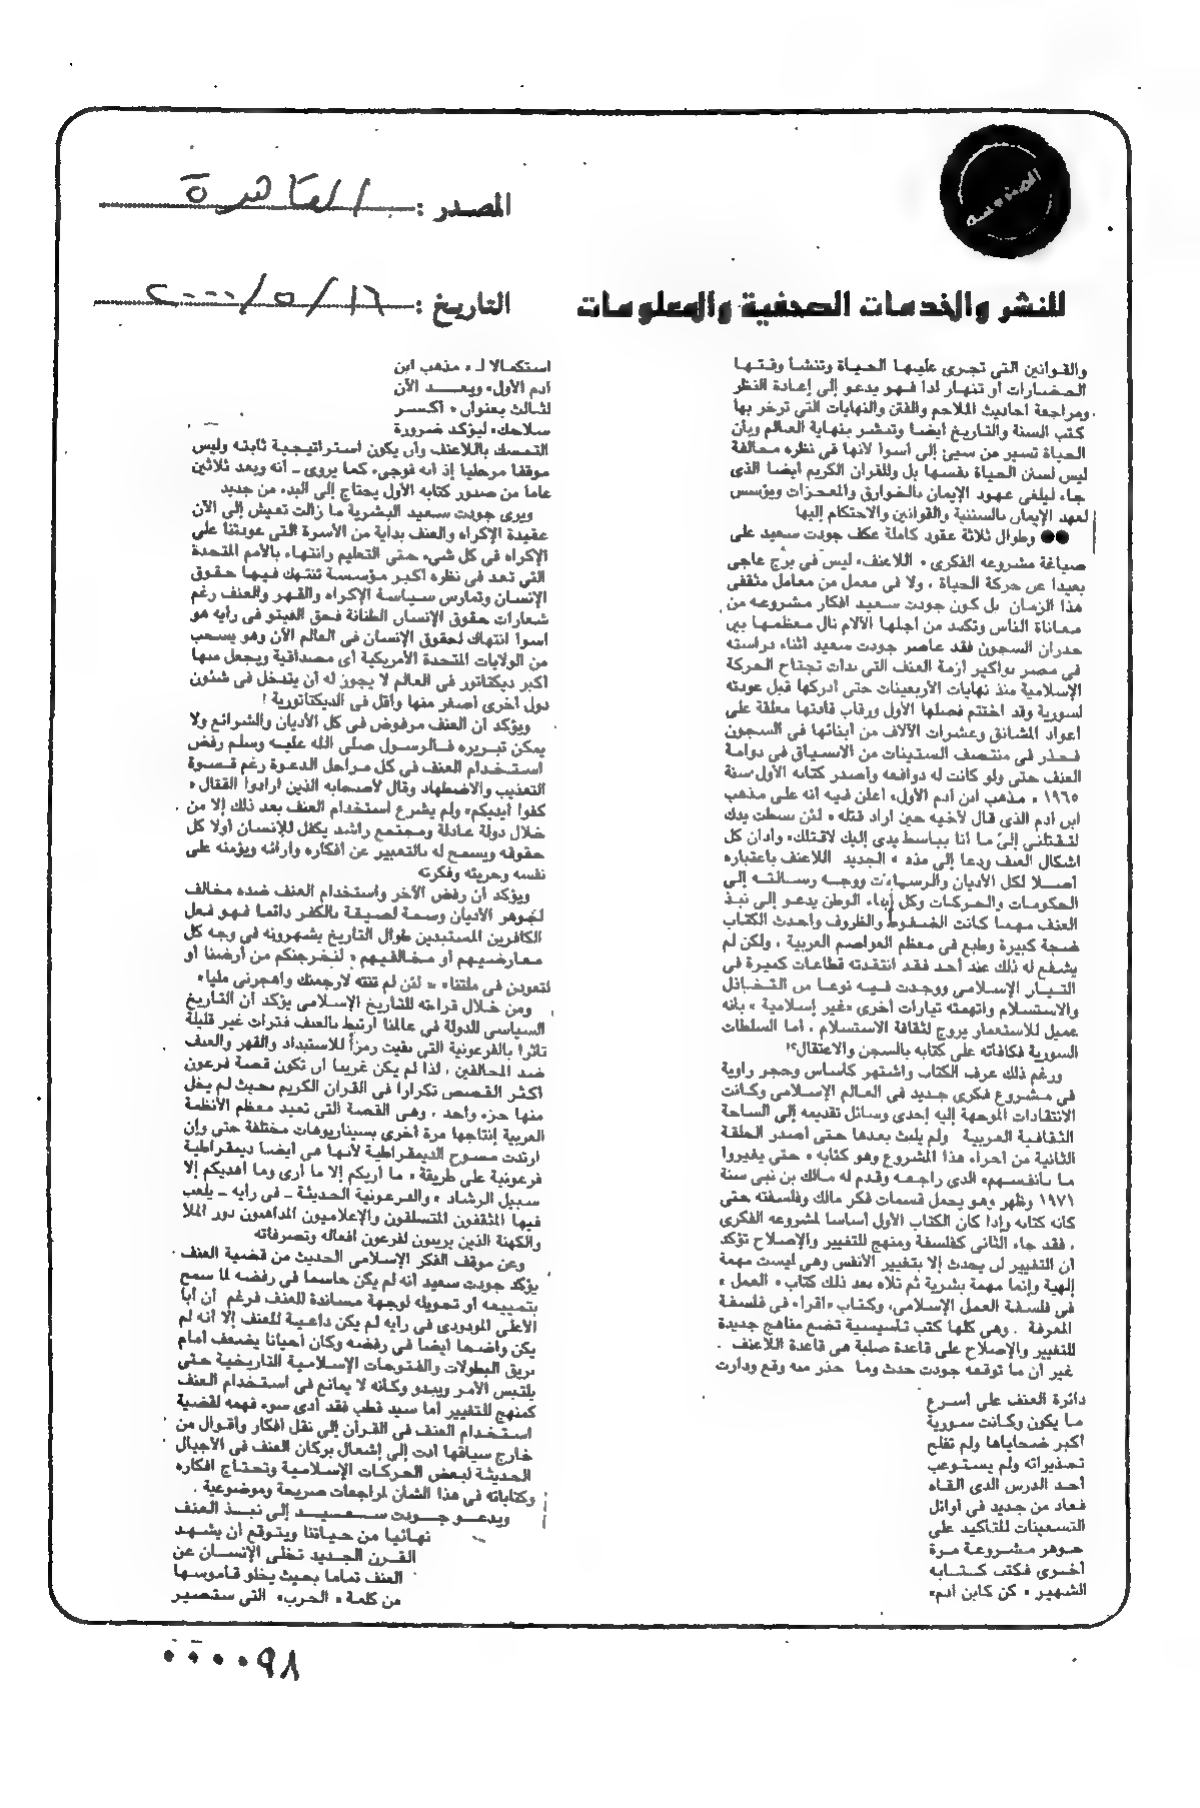 المصدر : القاهرة
للنشر والخدمات الصحفية والمعلومات
التاريخ : ١٦/٥/٢٠٠٠
والقوانين التى تجرى عليها الحياة وتنشأ وفقها
الحضارات أو تنهار لذا فهو يدعو إلى إعادة النظر
ومراجعة أحاديث الملاحم والفتن والنهايات التى تزخر بها
كتب السنة والتاريخ أيضا وتبشر بنهاية العالم وبأن
الحياة تسير من سيئ إلى أسوأ لأنها فى نظره مخالفة
ليس لسنن الحياة نفسها بل وللقرآن الكريم أيضا الذى
جاء ليلغى عهود الإيمان بالخوارق والمعجزات ويؤسس
لعهد الإيمان بالسننية والقوانين والاحتكام إليها
●● وطوال ثلاثة عقود كاملة عكف جودت سعيد على
صياغة مشروعه الفكرى « اللاعنف» ليس فى برج عاجى
بعيدا عن حركة الحياة ، ولا فى معمل من معامل مثقفى
هذا الزمان بل كون جودت سعيد أفكار مشروعه من
معاناة الناس وتكبد من أجلها الآلام نال معظمها بين
جدران السجون فقد عاصر جودت سعيد أثناء دراسته
فى مصر بواكير أزمة العنف التى بدأت تجتاح الحركة
الإسلامية منذ نهايات الأربعينات حتى أدركها قبل عودته
لسورية وقد اختتم فصلها الأول ورقاب قادتها معلقة على
أعواد المشانق وعشرات الآلاف من أبنائها فى السجون
فحذر فى منتصف الستينات من الانسياق فى دوامة
العنف حتى ولو كانت له دوافعه وأصدر كتابه الأول سنة
١٩٦٥ « مذهب ابن آدم الأول» أعلن فيه أنه على مذهب
ابن آدم الذى قال لأخيه حين أراد قتله « لئن بسطت يدك
لتقتلنى إلىّ ما أنا بباسط يدى إليك لأقتلك» وأدان كل
أشكال العنف ودعا إلى مذهبه الجديد اللاعنف باعتباره
أصلا لكل الأديان والرسالات ووجه رسالته إلى
الحكومات والحركات وكل أبناء الوطن يدعو إلى نبذ
العنف مهما كانت الضغوط والظروف وأحدث الكتاب
ضجة كبيرة وطبع فى معظم العواصم العربية ، ولكن لم
يشفع له ذلك عند أحد فقد انتقدته قطاعات كبيرة فى
التيار الإسلامى ووجدت فيه نوعا من التخاذل
والاستسلام واتهمته تيارات أخرى «غير إسلامية » بأنه
عميل للاستعمار يروج لثقافة الاستسلام ، أما السلطات
السورية فكافأته على كتابه بالسجن والاعتقال؟!
ورغم ذلك عرف الكتاب واشتهر كأساس وحجر زاوية
فى مشروع فكرى جديد فى العالم الإسلامى وكانت
الانتقادات الموجهة إليه إحدى وسائل تقديمه إلى الساحة
الثقافية العربية ولم يلبث بعدها حتى أصدر الحلقة
الثانية من أجزاء هذا المشروع وهو كتابه « حتى يغيروا
ما بأنفسهم» الذى راجعه وقدم له مالك بن نبى سنة
١٩٧١ وظهر وهو يحمل قسمات فكر مالك وفلسفته حتى
كأنه كتابه وإذا كان الكتاب الأول أساسا لمشروعه الفكرى
، فقد جاء الثانى كفلسفة ومنهج للتغيير والإصلاح تؤكد
أن التغيير لن يحدث إلا بتغيير الأنفس وهى ليست مهمة
إلهية وإنما مهمة بشرية ثم تلاه بعد ذلك كتاب « العمل »
فى فلسفة العمل الإسلامى، وكتاب «اقرأ» فى فلسفة
المعرفة . وهى كلها كتب تأسيسية تضع مناهج جديدة
للتغيير والإصلاح على قاعدة صلبة هى قاعدة اللاعنف .
غير أن ما توقعه جودت حدث وما حذر منه وقع ودارت
دائرة العنف على أسرع
ما يكون وكانت سورية
أكبر ضحاياها ولم تفلح
تحذيراته ولم يستوعب
أحد الدرس الذى ألقاه
فعاد من جديد فى أوائل
التسعينات للتأكيد على
جوهر مشروعة مرة
أخرى فكتب كتابه
الشهير « كن كابن آدم»
استكمالا لـ « مذهب ابن
آدم الأول» ويعد الآن
لثالث بعنوان « اكسر
سلاحك» ليؤكد ضرورة
التمسك باللاعنف وأن يكون استراتيجية ثابته وليس
موقفا مرحليا إذ أنه فوجىء كما يروى ـ أنه وبعد ثلاثين
عاما من صدور كتابه الأول يحتاج إلى البدء من جديد
ويرى جودت سعيد البشرية ما زالت تعيش إلى الآن
عقيدة الإكراه والعنف بداية من الأسرة التى عودتنا على
الإكراه فى كل شىء حتى التعليم وانتهاء بالأمم المتحدة
التى تعد فى نظره أكبر مؤسسة تنتهك فيها حقوق
الإنسان وتمارس سياسة الإكراه والقهر والعنف رغم
شعارات حقوق الإنسان الطنانة فحق الفيتو فى رأيه هو
أسوأ انتهاك لحقوق الإنسان فى العالم الآن وهو يسحب
من الولايات المتحدة الأمريكية أى مصداقية ويجعل منها
أكبر ديكتاتور فى العالم لا يجوز له أن يتدخل فى شئون
دول أخرى أصغر منها وأقل فى الديكتاتورية !
ويؤكد أن العنف مرفوض فى كل الأديان والشرائع ولا
يمكن تبريره فالرسول صلى الله عليه وسلم رفض
استخدام العنف فى كل مراحل الدعوة رغم قسوة
التعذيب والاضطهاد وقال لأصحابه الذين أرادوا القتال «
كفوا أيديكم» ولم يشرع استخدام العنف بعد ذلك إلا من
خلال دولة عادلة ومجتمع راشد يكفل للإنسان أولا كل
حقوقه ويسمح له بالتعبير عن أفكاره وآرائه ويؤمنه على
نفسه وحريته وفكرته
ويؤكد أن رفض الآخر واستخدام العنف ضده مخالف
لجوهر الأديان وسمة لصيقة بالكفر دائما فهو فعل
الكافرين المستبدين طوال التاريخ يشهرونه فى وجه كل
معارضيهم أو مخالفيهم « لنخرجنكم من أرضنا أو
لتعودن فى ملتنا» « لئن لم تنته لأرجمنك واهجرنى مليا»
ومن خلال قراءته للتاريخ الإسلامى يؤكد أن التاريخ
السياسى للدولة فى عالمنا ارتبط بالعنف فترات غير قليلة
تأثرا بالفرعونية التى بقيت رمزاً للاستبداد والقهر والعنف
ضد المخالفين ، لذا لم يكن غريبا أن تكون قصة فرعون
أكثر القصص تكرارا فى القرآن الكريم بحيث لم يخل
منها جزء واحد ، وهى القصة التى تعيد معظم الأنظمة
العربية إنتاجها مرة أخرى بسيناريوهات مختلفة حتى وإن
ارتدت مسوح الديمقراطية لأنها هى أيضا ديمقراطية
فرعونية على طريقة « ما أريكم إلا ما أرى وما أهديكم إلا
سبيل الرشاد » والفرعونية الحديثة ـ فى رأيه ـ يلعب
فيها المثقفون المتسلقون والإعلاميون المداهنون دور الملأ
والكهنة الذين يزينون لفرعون أفعاله وتصرفاته
وعن موقف الفكر الإسلامى الحديث من قضية العنف
يؤكد جودت سعيد أنه لم يكن حاسما فى رفضه لما سمح
بتمييعه أو تحويله لوجهة مساندة للعنف فرغم أن أبا
الأعلى المودودى فى رأيه لم يكن داعية للعنف إلا أنه لم
يكن واضحا أيضا فى رفضه وكان أحيانا يضعف أمام
بريق البطولات والفتوحات الإسلامية التاريخية حتى
يلتبس الأمر ويبدو وكأنه لا يمانع فى استخدام العنف
كمنهج للتغيير أما سيد قطب فقد أدى سوء فهمه لقضية
استخدام العنف فى القرآن إلى نقل أفكار وأقوال من
خارج سياقها أدت إلى إشعال بركان العنف فى الأجيال
الحديثة لبعض الحركات الإسلامية وتحتاج أفكاره
وكتاباته فى هذا الشأن لمراجعات صريحة وموضوعية .
ويدعو جودت سعيد إلى نبذ العنف
نهائيا من حياتنا ويتوقع أن يشهد
القرن الجديد تخلى الإنسان عن
العنف تماما بحيث يخلو قاموسها
من كلمة « الحرب» التى ستصير
٠٠٠٠٩٨